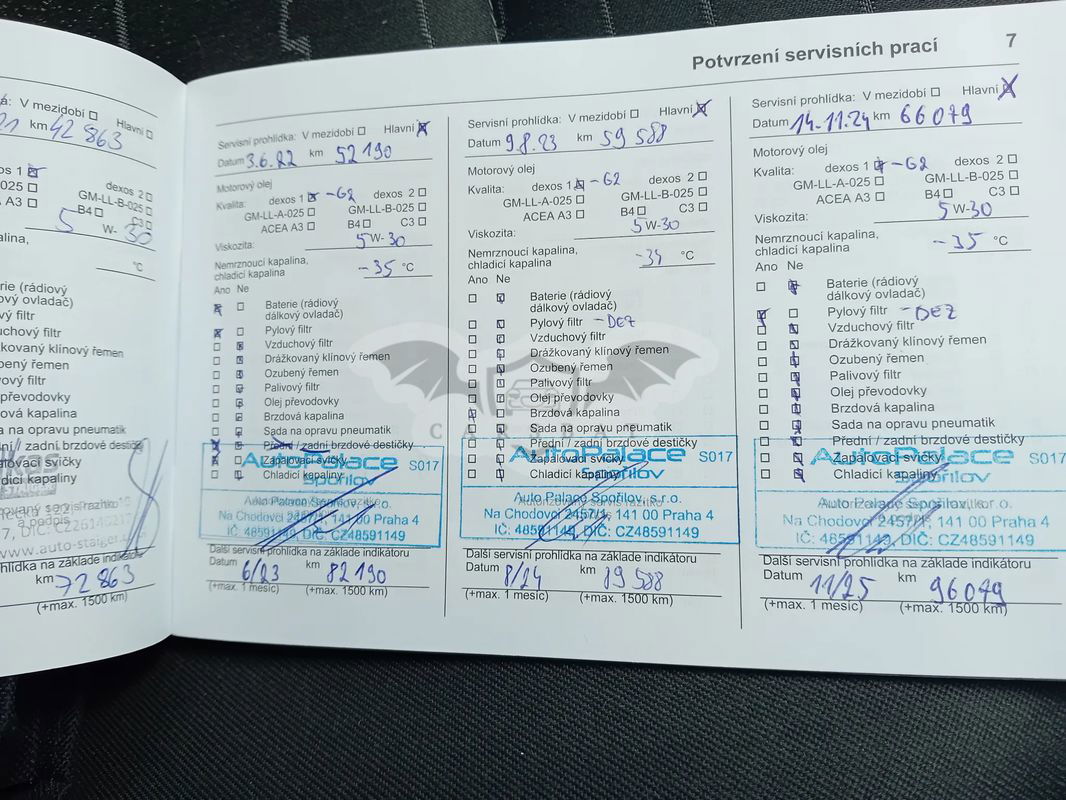 Potvrzení servisních prací 7
V mezidobí Hlavní
km 42 863
dexos 1
dexos 2
GM-LL-B-025
B4 C3
5 W- 30
°C
km 72 863
(+max. 1500 km)
Servisní prohlídka: V mezidobí Hlavní
Datum 3.6.22 km 52 190
Motorový olej
Kvalita: dexos 1 - G2 dexos 2
GM-LL-A-025 GM-LL-B-025
ACEA A3 B4 C3
Viskozita: 5 W- 30
Nemrznoucí kapalina,
chladicí kapalina -35 °C
Ano Ne
Baterie (rádiový
dálkový ovladač)
Pylový filtr
Vzduchový filtr
Drážkovaný klínový řemen
Ozubený řemen
Palivový filtr
Olej převodovky
Brzdová kapalina
Sada na opravu pneumatik
Přední / zadní brzdové destičky
Zapalovací svíčky
Chladicí kapaliny
AutoPalace S017
Spořilov
Auto Palace Spořilov, s.r.o.
Na Chodovci 2457/1, 141 00 Praha 4
IČ: 48591149, DIČ: CZ48591149
Další servisní prohlídka na základe indikátoru
Datum 6/23 km 82 190
(+max. 1 mesíc) (+max. 1500 km)
Servisní prohlídka: V mezidobí Hlavní
Datum 9.8.23 km 59 588
Motorový olej
Kvalita: dexos 1 - G2 dexos 2
GM-LL-A-025 GM-LL-B-025
ACEA A3 B4 C3
Viskozita: 5 W-30
Nemrznoucí kapalina,
chladicí kapalina -34 °C
Ano Ne
Baterie (rádiový
dálkový ovladač)
Pylový filtr - DEZ
Vzduchový filtr
Drážkovaný klínový řemen
Ozubený řemen
Palivový filtr
Olej převodovky
Brzdová kapalina
Sada na opravu pneumatik
Přední / zadní brzdové destičky
Zapalovací svíčky
Chladicí kapaliny
AutoPalace S017
Spořilov
Auto Palace Spořilov, s.r.o.
Na Chodovci 2457/1, 141 00 Praha 4
IČ: 48591149, DIČ: CZ48591149
Další servisní prohlídka na základe indikátoru
Datum 8/24 km 89 588
(+max. 1 mesíc) (+max. 1500 km)
Servisní prohlídka: V mezidobí Hlavní
Datum 14.11.24 km 66 079
Motorový olej
Kvalita: dexos 1 - G2 dexos 2
GM-LL-A-025 GM-LL-B-025
ACEA A3 B4 C3
Viskozita: 5 W-30
Nemrznoucí kapalina,
chladicí kapalina -35 °C
Ano Ne
Baterie (rádiový
dálkový ovladač)
Pylový filtr - DEZ
Vzduchový filtr
Drážkovaný klínový řemen
Ozubený řemen
Palivový filtr
Olej převodovky
Brzdová kapalina
Sada na opravu pneumatik
Přední / zadní brzdové destičky
Zapalovací svíčky
Chladicí kapaliny
AutoPalace S017
Spořilov
Auto Palace Spořilov, s.r.o.
Na Chodovci 2457/1, 141 00 Praha 4
IČ: 48591149, DIČ: CZ48591149
Další servisní prohlídka na základe indikátoru
Datum 11/25 km 96079
(+max. 1 mesíc) (+max. 1500 km)